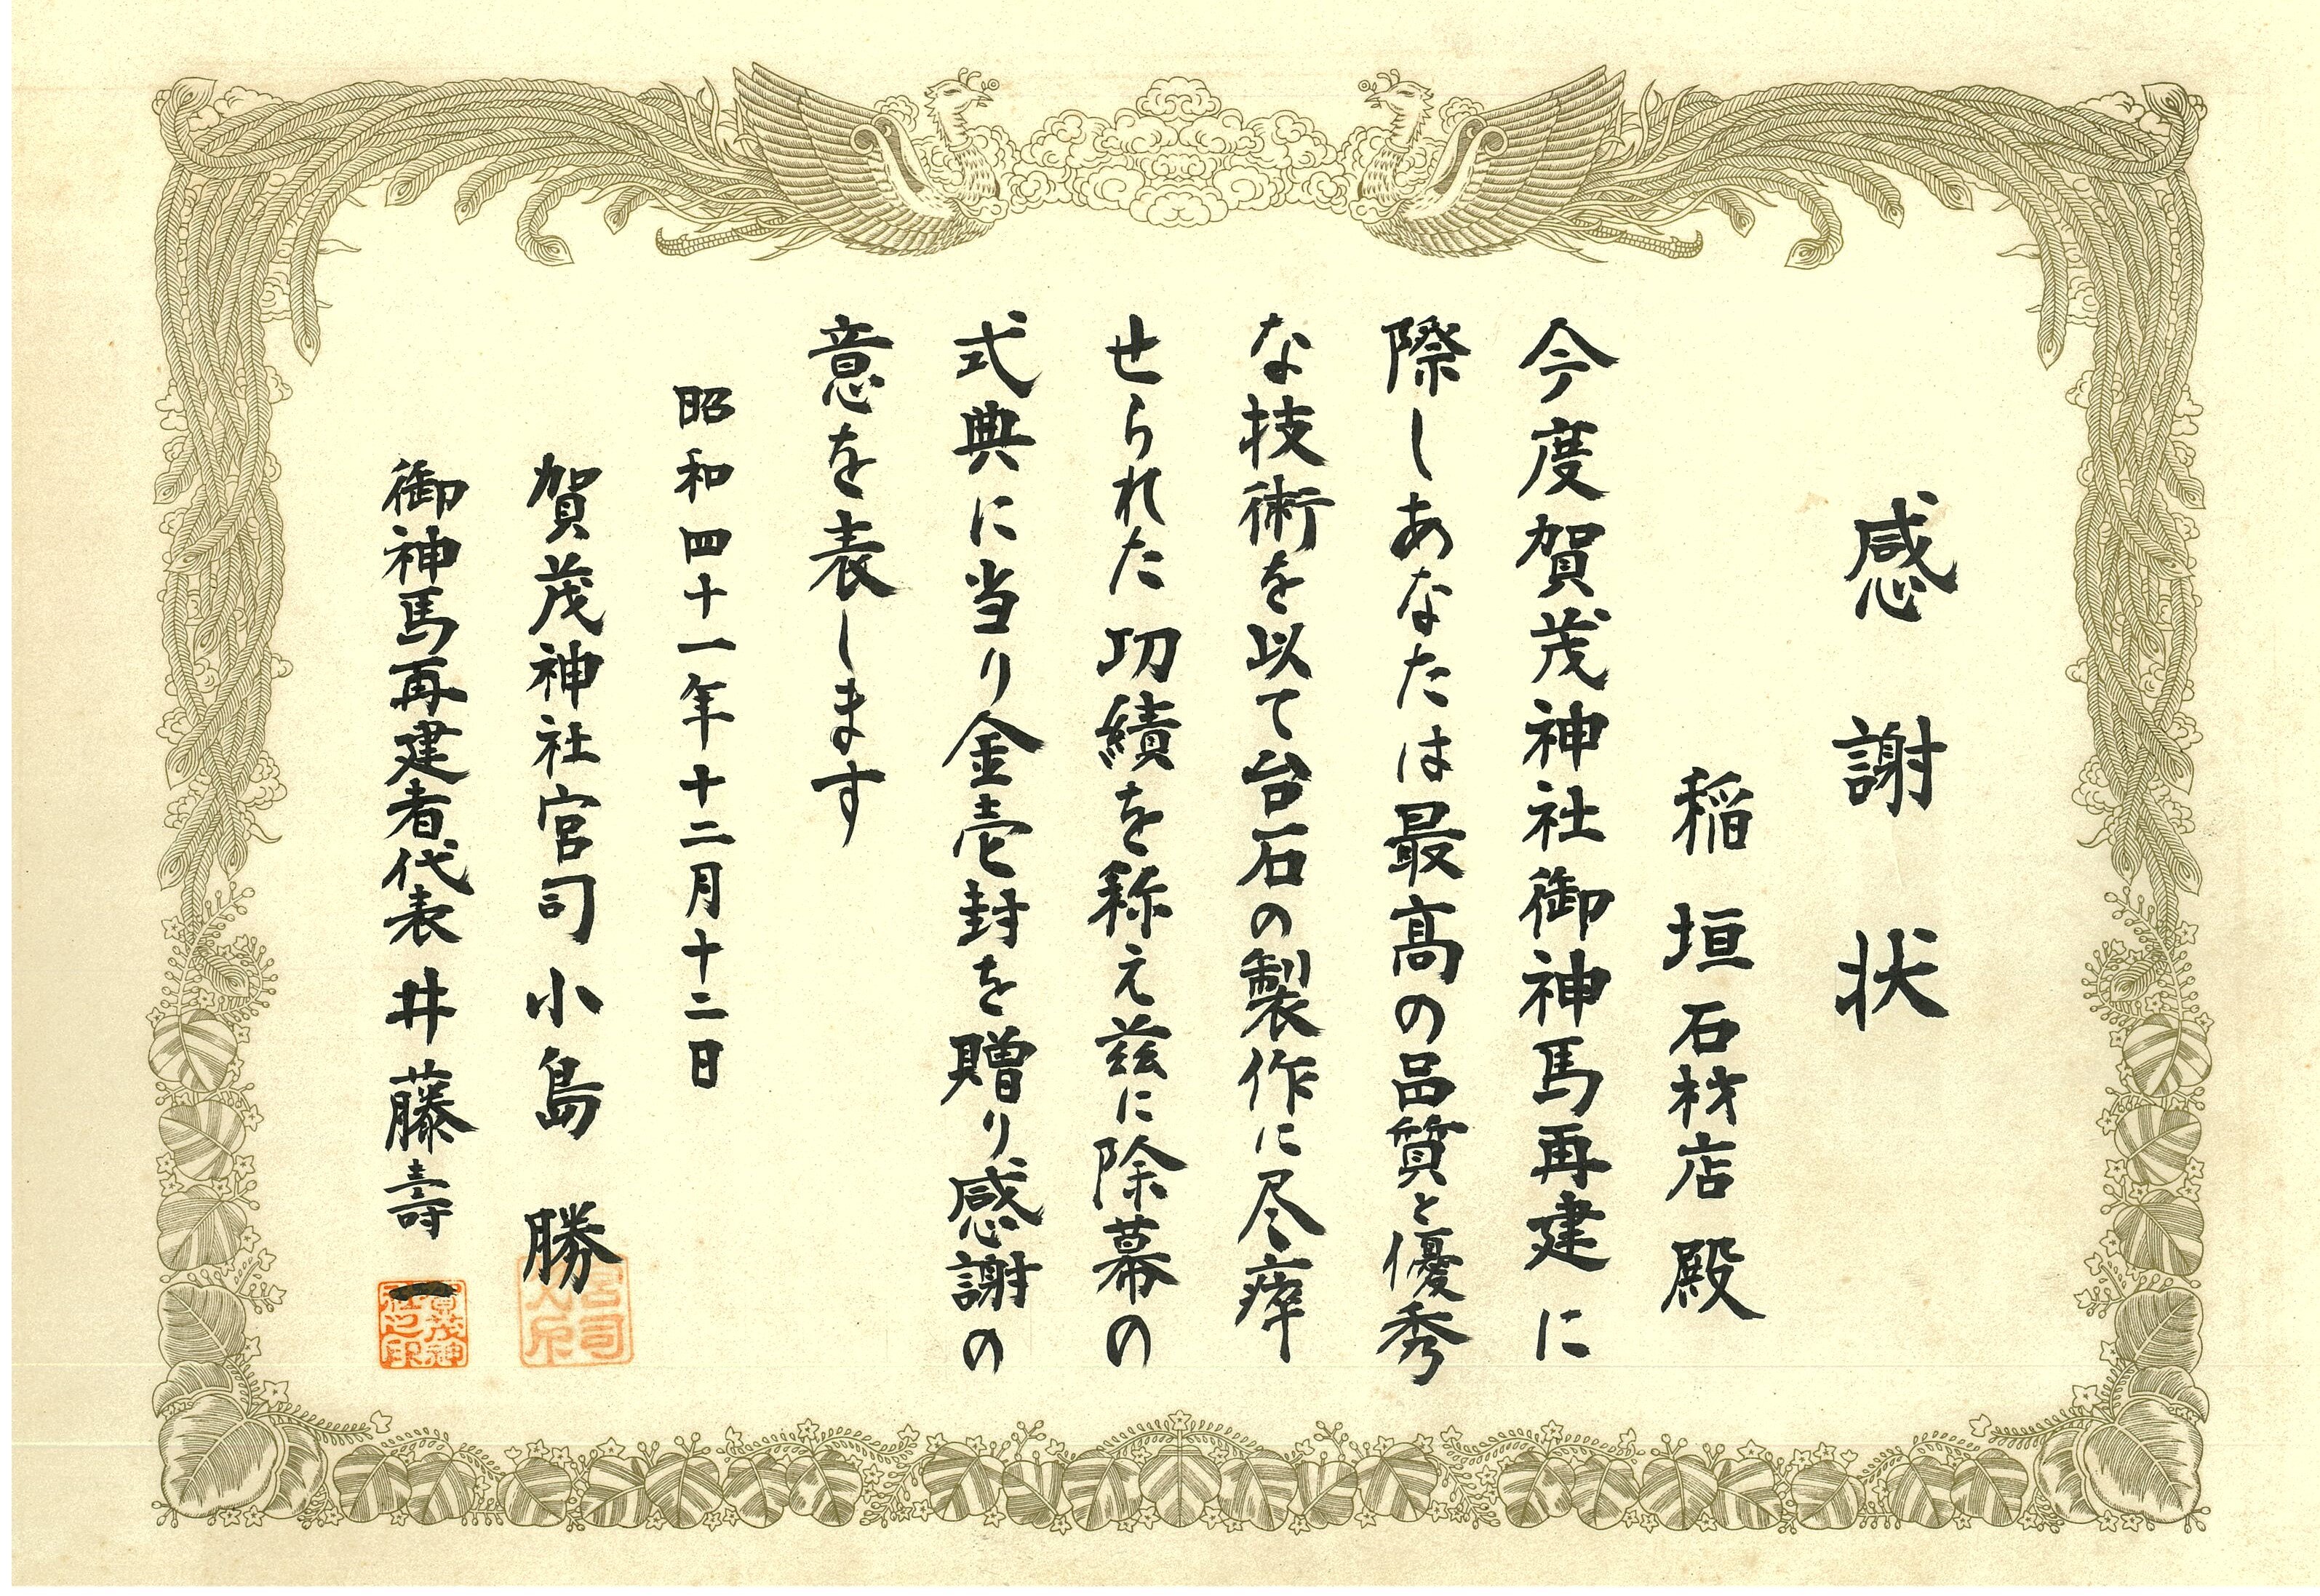 感謝状
稲垣石材店殿
今度賀茂神社御神馬再建に
際しあなたは最高の品質と優秀
な技術を以て台石の製作に尽瘁
せられた功績を称え茲に除幕の
式典に当り金壱封を贈り感謝の
意を表します
昭和四十一年十二月十二日
賀茂神社宮司小島勝
御神馬再建者代表井藤壽一